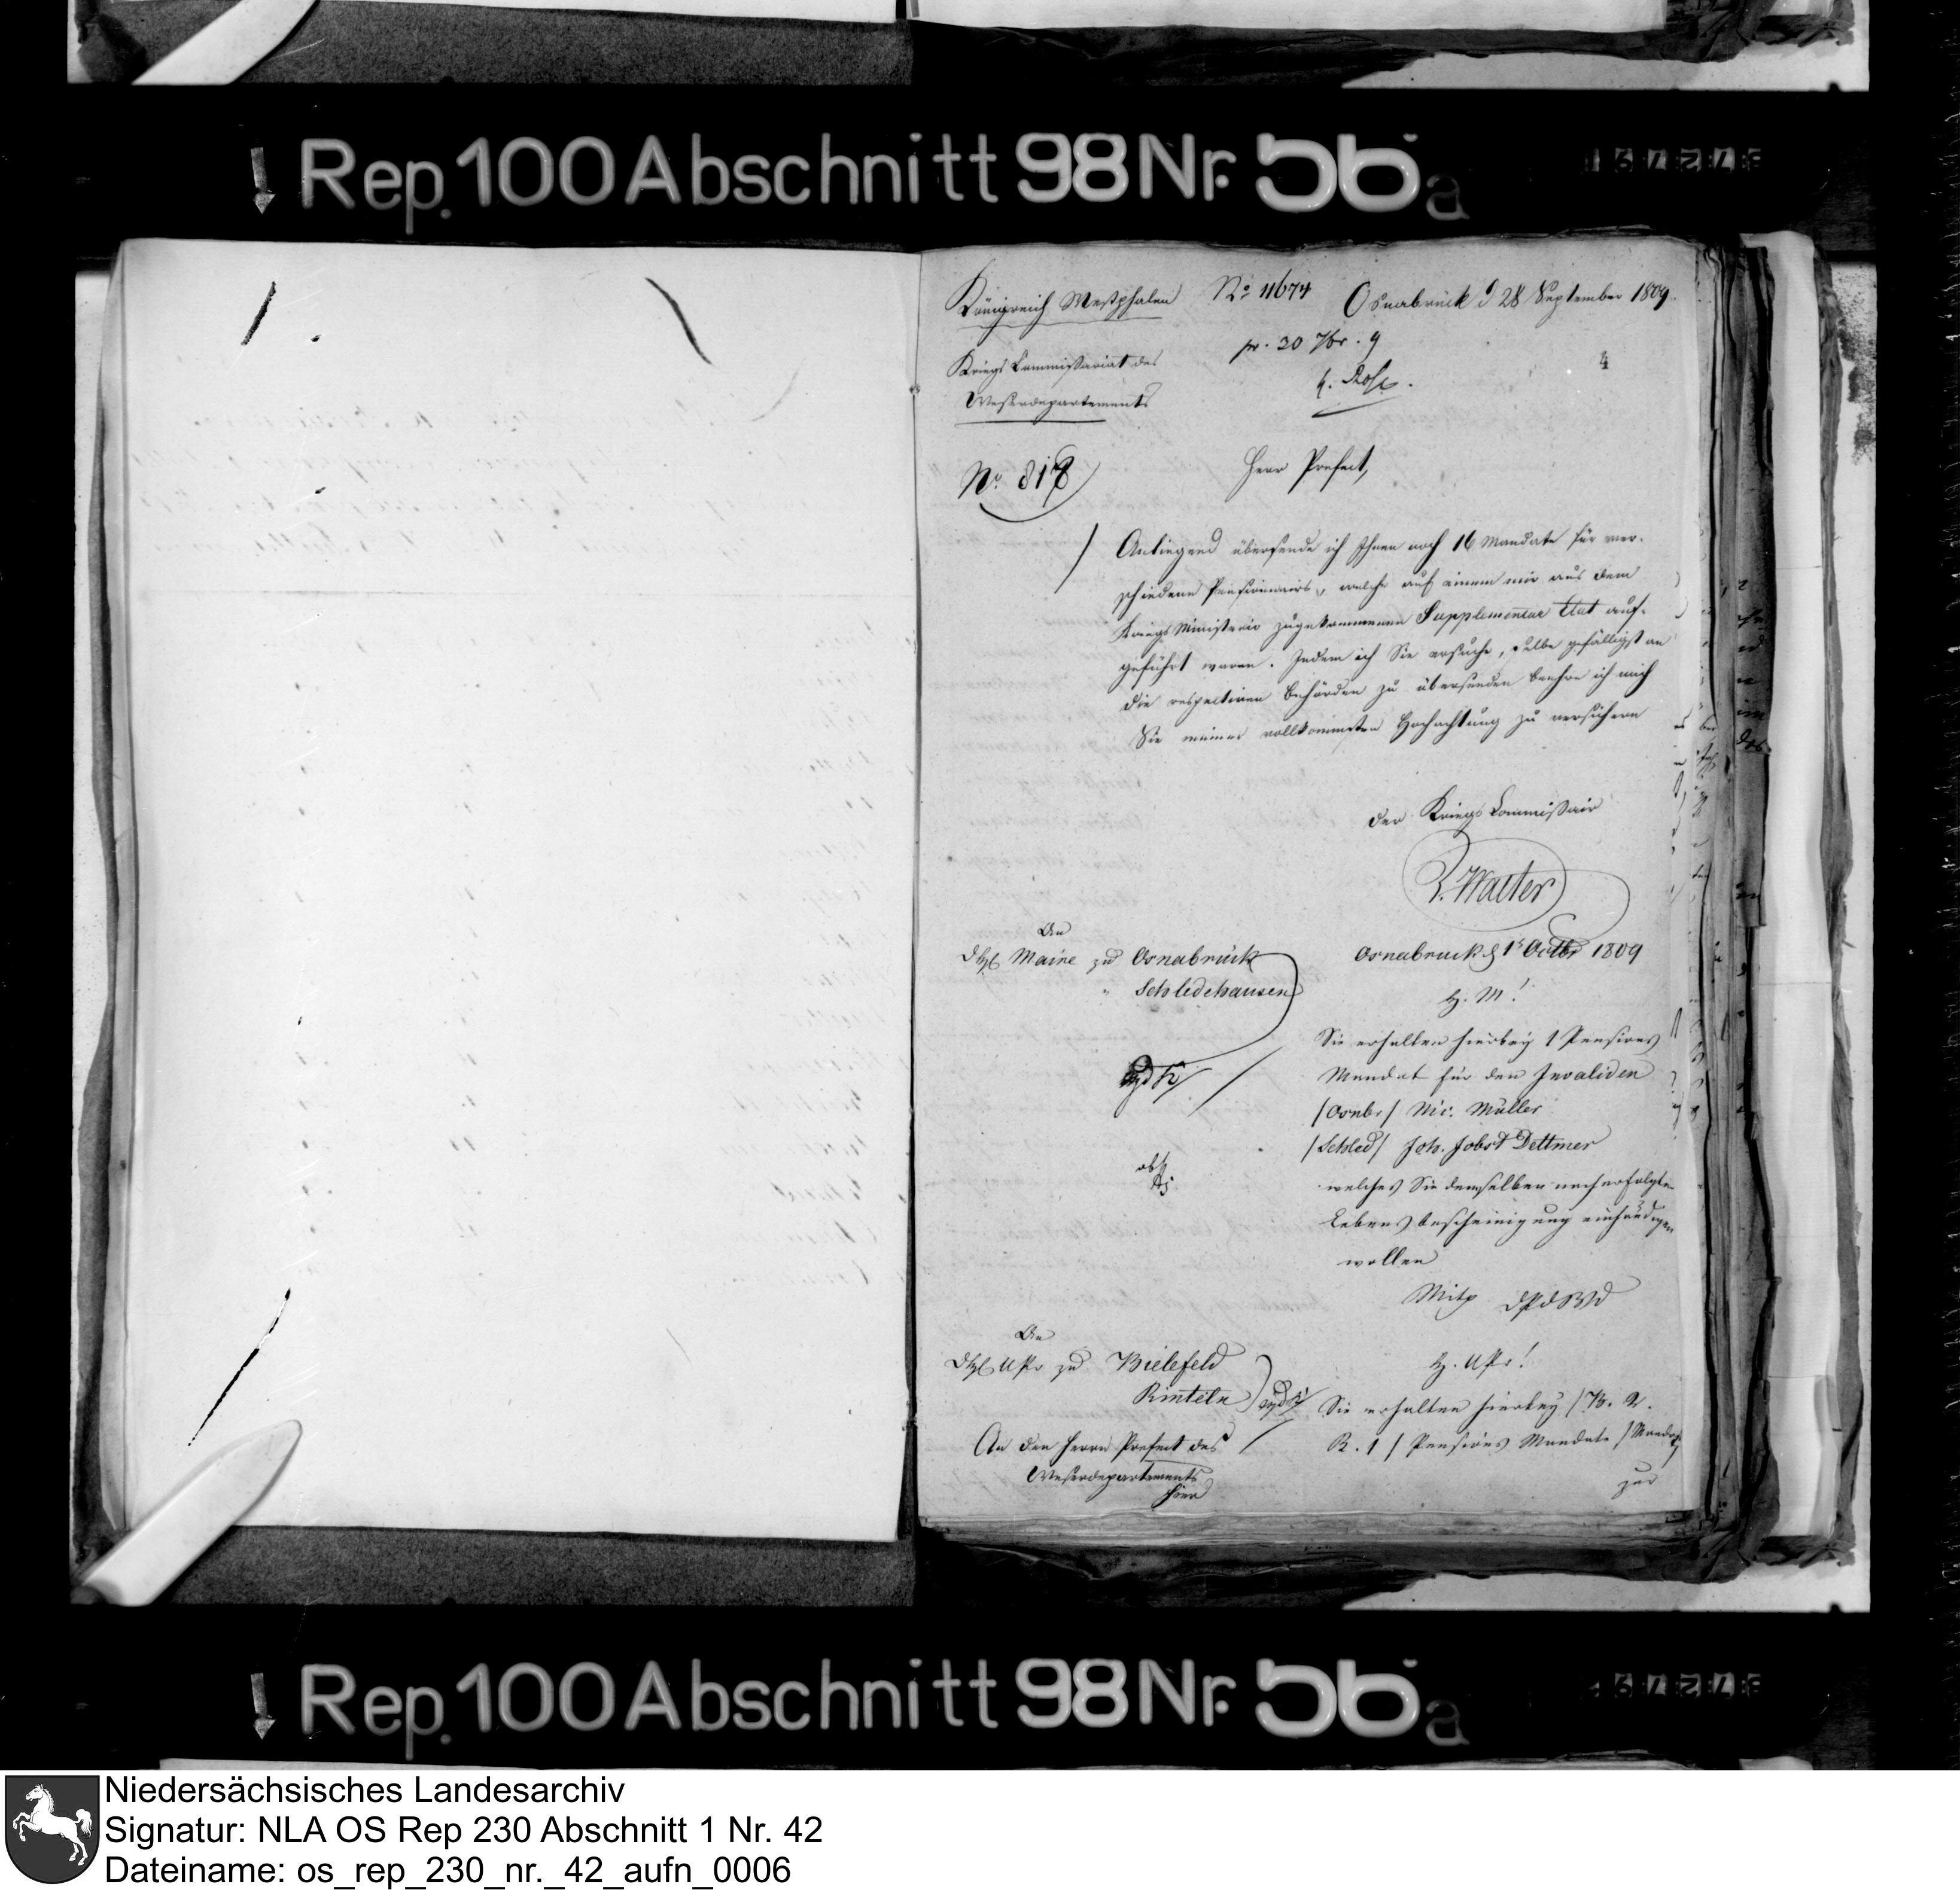 Rep. 100 Abschnitt 98 Nr. 56a
Königreich Westphalen
No 11674
Osnabrück d 28 September 1809.
pr. 30 7br. 9
4
Kriegs Commissariat des
Weserdepartements
No. 818
Herr Prefect,
Anliegend übersende ich Ihnen noch 16 Mandate für ver-
schiedene Pensionnairs, welche auf einem mir aus dem
Kriegs Ministerio zugekommenen Supplementar Etat auf-
geführt waren. Indem ich Sie ersuche, selbe gefälligst an
die respectiven Behörden zu übersenden beehre ich mich
Sie meiner vollkommensten Hochachtung zu versichern
der Kriegs Commissair
Walter
An
Maire zu Osnabrück
Schledehausen
Osnabruck d 1 Octbr 1809
H. M!
Sie erhalten hierbey 1 Pensions
Mandat für den Invaliden
/Osnbr/ Nic. Müller
/Schled/ Joh. Jobst Dettmer
welches Sie demselben nach erfolgter
Lebensbescheinigung einhändigen
wollen
DPdWD
An
UPr zu Bielefeld
Rinteln
H. UPr!
Sie erhalten hierbey /B. 2.
R. 1/ Pensions Mandate
zur
An den Herrn Prefect des
Weserdepartements
hier
Rep. 100 Abschnitt 98 Nr. 56a
Niedersächsisches Landesarchiv
Signatur: NLA OS Rep 230 Abschnitt 1 Nr. 42
Dateiname: os_rep_230_nr._42_aufn_0006